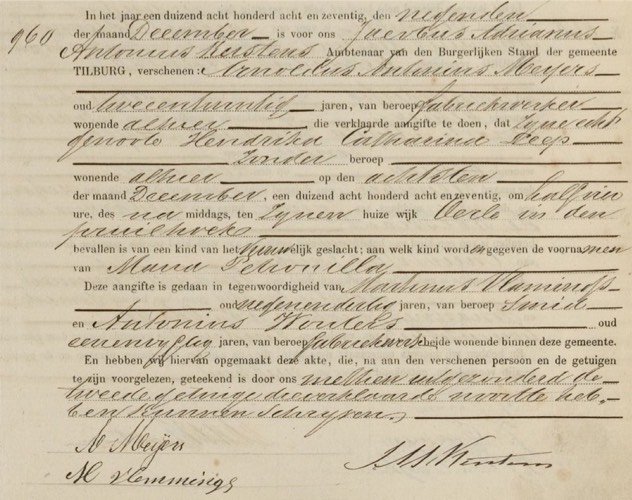 In het jaar een duizend acht honderd acht en zeventig, den negenden
960
der maand December is voor ons Jacobus Adrianus
Antonius Kerstens Ambtenaar van den Burgerlijken Stand der gemeente
TILBURG, verschenen: Arnoldus Antonius Meyers
oud twee en twintig jaren, van beroep fabriekwerker
wonende alhier die verklaarde aangifte te doen, dat zijne echt
genoote Hendrika Catharina
Zonder beroep
wonende alhier op den achtsten
der maand December, een duizend acht honderd acht en zeventig, om half vier
ure, des na middags, ten zijnen huize wijk Oerle in den
bevallen is van een kind van het vrouwelijk geslacht; aan welk kind worden gegeven de voornamen
van Maria Petronilla
Deze aangifte is gedaan in tegenwoordigheid van Martinus
oud negenendertig jaren, van beroep Smid
en Antonius Wouters oud
eenenvyftig jaren, van beroep fabriekwerk beide wonende binnen deze gemeente.
En hebben wij hiervan opgemaakt deze akte, die, na aan den verschenen persoon en de getuigen
te zijn voorgelezen, geteekend is door ons met hen uitgezonderd de
tweede getuige die verklaarde nooit te heb-
ben kunnen schrijven
A Meijers
M Vlemmings